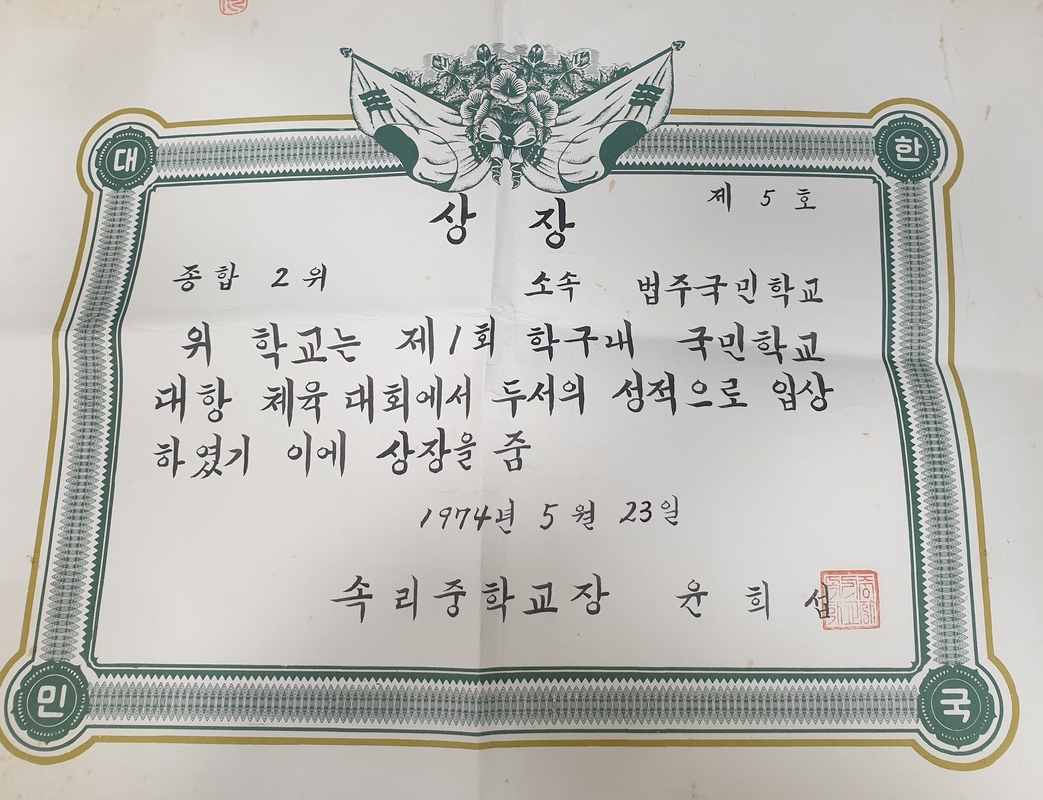 대 한
제 5 호
상 장
종합 2위 소속 법주국민학교
위 학교는 제1회 학구내 국민학교
대항 체육대회에서 두서의 성적으로 입상
하였기 이에 상장을 줌
1974년 5월 23일
속리중학교장 윤희섭
민 국